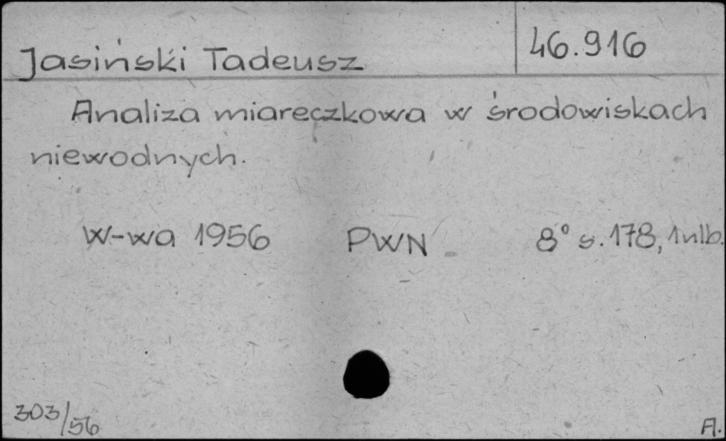 46.916
Jasiński Tadeusz
Analiza miareczkowa w środowiskach
niewodnych.
W-wa 1956 PWN 8° s. 178, 1 nlb.
303/56
A.